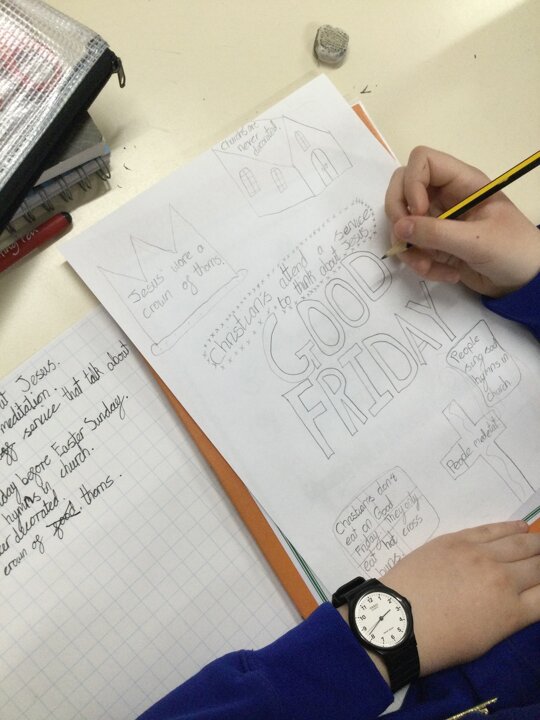 Churchs are
never
decorated.
Jesus wore a
crown of thorns.
Christians attend a service
to think about Jesus.
GOOD
FRIDAY
People
sing
hymns in
church
People meditate
Christian's don't
eat on Good
Friday They only
eat hot cross
buns.
at Jesus.
meditation.
service that talk about
day before Easter Sunday.
hymns in church.
decorated.
crown of thorns.